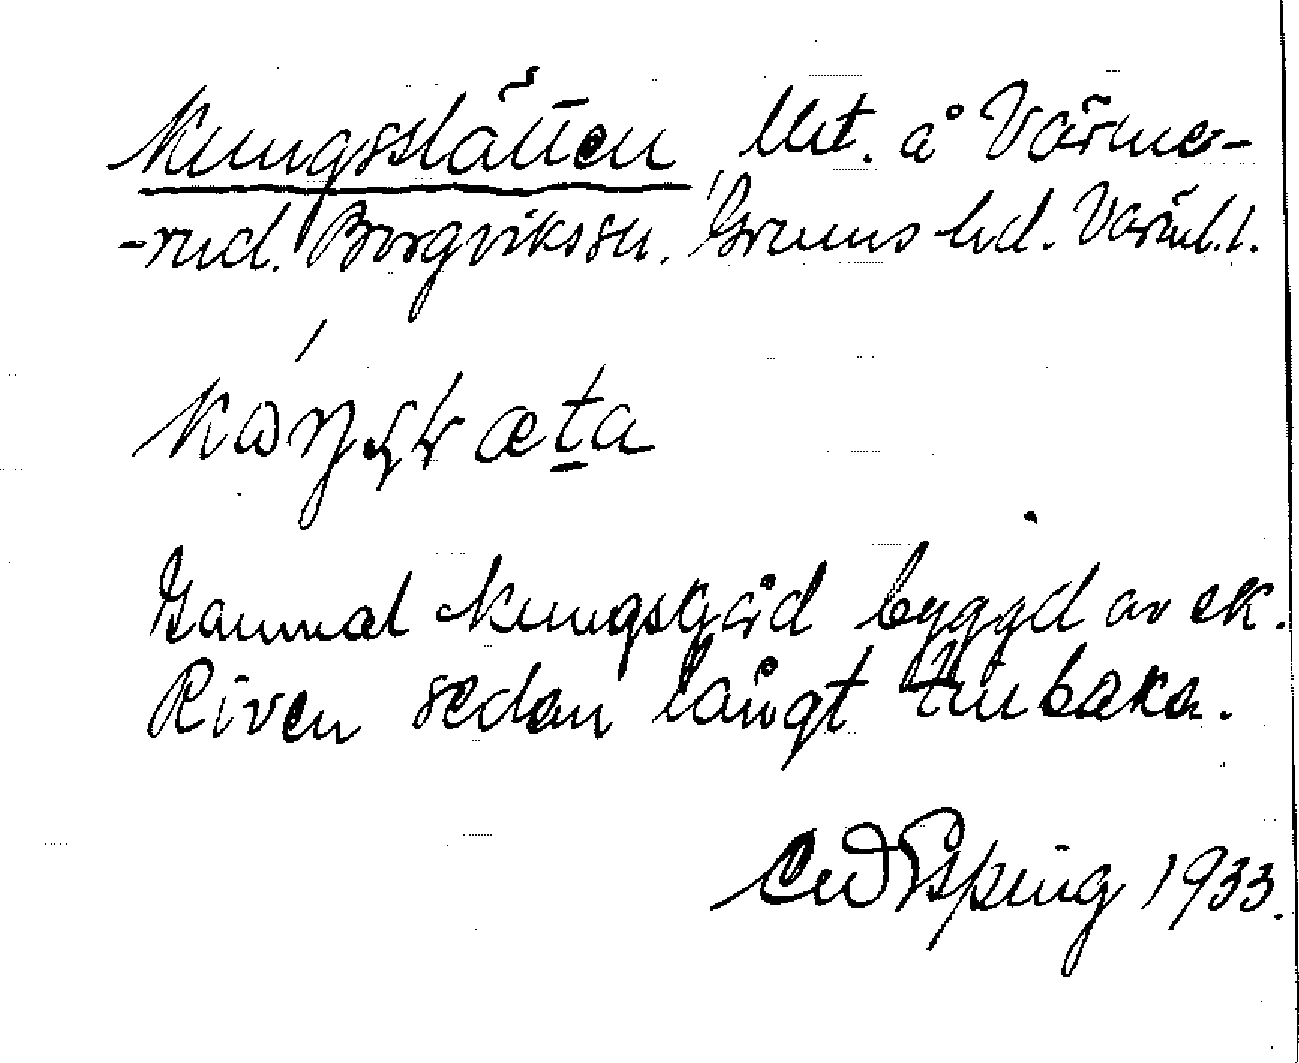 Kungsslätten Ut. å Värme-
-rud. Borgvikssn. Grums hd. Värml.l.
Gammal kungsgård byggd av ek.
Riven sedan långt tillbaka.
1933.